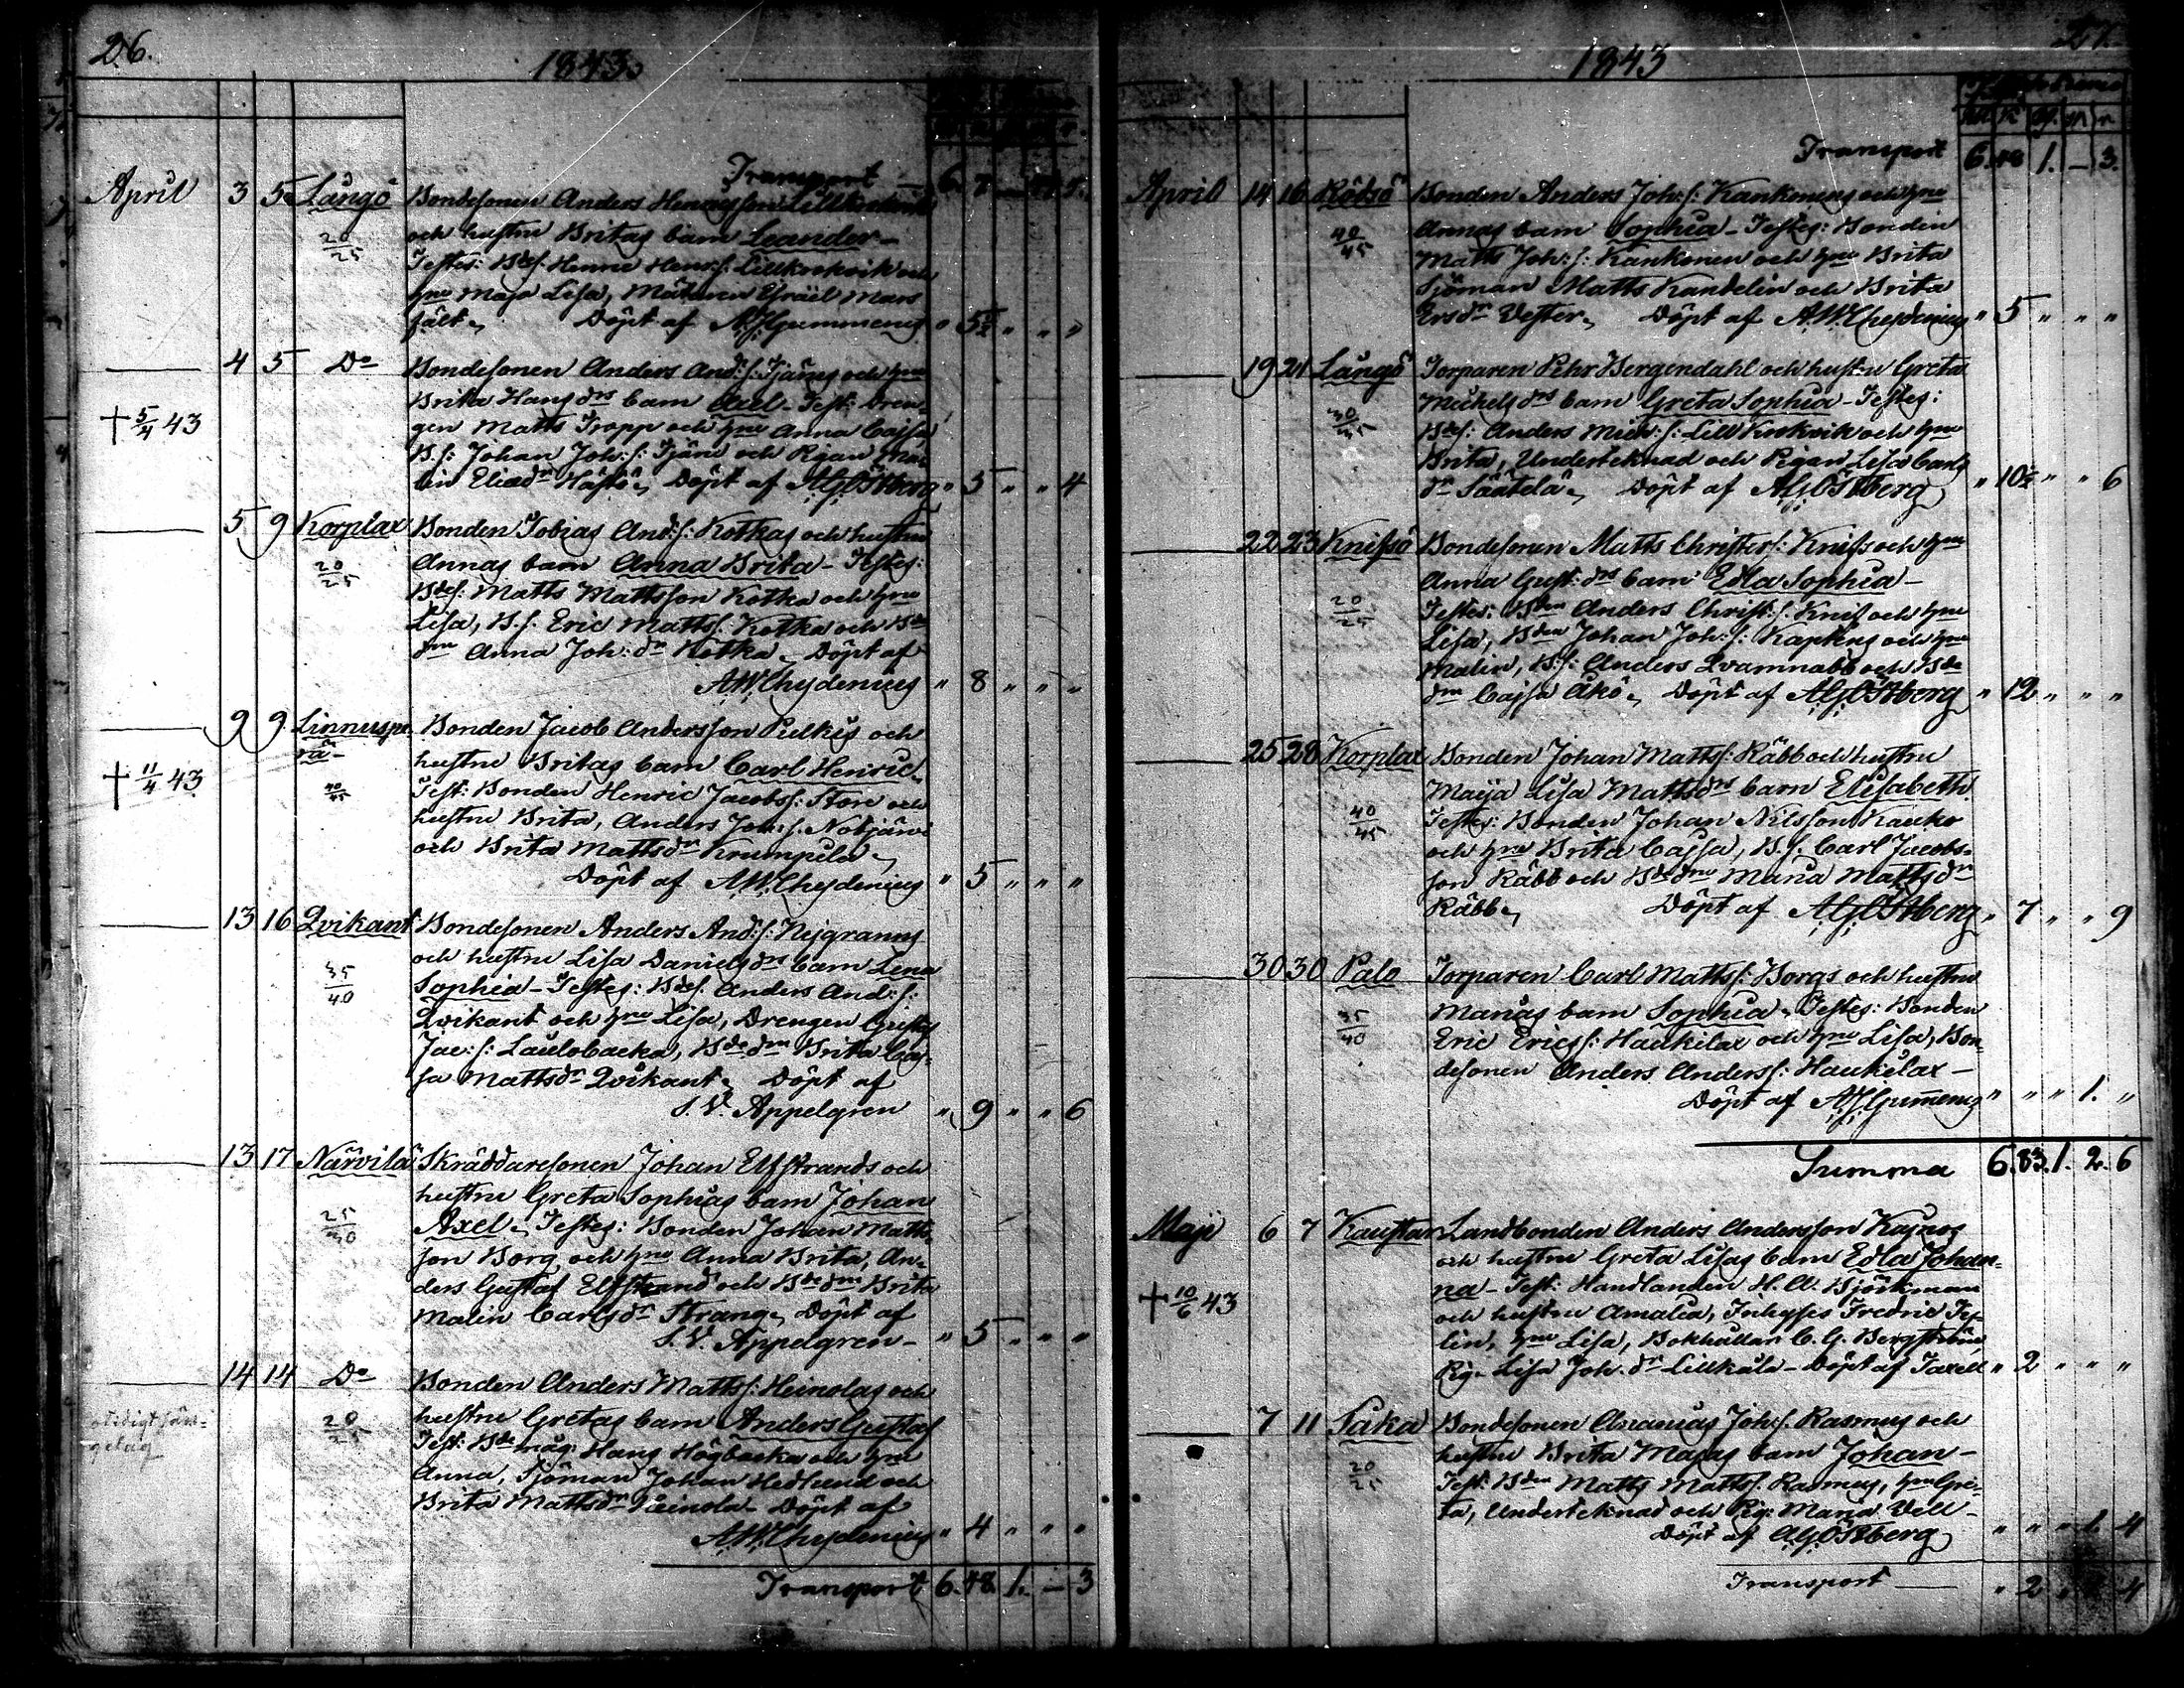 26.
1843.
Transport 6.
April 3 5 Långö Bondesonen Anders Henricsson
20/25 och hustru Britas barn Leander-
Testes: Bdes: Henric Henr:s: Lillkockvik och
hru Maja Lisa, Mätaren Esraël Mars
fält. Döpt af A.J. Gummerus " 5½ " " "
4 5 Do Bondesonen Anders And:s: Tjärus och hru
Brita Hansdrs barn Axel - Test: Dren-
+ 5/4 43 gen Matts Tropp och hru Anna Cajsa
B.s: Johan Joh:s: Tjäru och Pigan Ma-
lin Eliædr Hästö, Döpt af A.G. Östberg " 5 " " 4
5 9 Korplax Bonden Tobias And:s: Kotkas och hustru
20/25 Annas barn Anna Brita - Testes:
Bdes: Matts Mattsson Kotka och hru
Lisa, B.s. Eric Mattss: Kotka och Bde
dm Anna Joh:dr Kotka - Döpt af
A.W. Chydenius " 8 " " "
9 9 Linnuspe Bonden Jacob Andersson Pulkis och
rä- hustru Britas barn Carl Henric
+ 11/4 43 40/45 Test: Bonden Henric Jacobss: Store och
hustru Brita, Anders Joh:s: Notjärvi
och Brita Mattsdr Krumpula
Döpt af A.W. Chydenius " 5 " " "
13 16 Qvikant Bondesonen Anders And:s: Nygranns
och hustru Lisa Danielsdrs barn Lena
35/40 Sophia - Testes: Bdes: Anders And:s:
Qvikant och hru Lisa, Drengen Gustaf
Jac:s: Laulobacka, Bdedm Brita Caj-
sa Mattsdr Qvikant - Döpt af
S.V. Appelgren " 9 " " 6
13 17 Närvilä Skräddaresonen Johan Elfstrands och
hustru Greta Sophias barn Johan
25/30 Axel - Testes: Bonden Johan Matts-
son Borg och hru Anna Brita, An-
ders Gustaf Elfstrand och Bdedm Brita
Malin Carlsdr Strang - Döpt af
S.V. Appelgren - " 5 " " "
14 14 Do Bonden Anders Mattss: Heinolas och
20 hustru Gretas barn Anders Gustaf
Test: Bdemåg Hans Högbacka och hru
Anna, Sjöman Johan Hedlund och
Brita Mattsdr Heinola - Döpt af
A.W. Chydenius " 4 " " "
Transport 6. 48. 1. - 3
1843
Transport 6. 48 1. - 3.
April 14 16 Rödsö Bonden Anders Joh:s: Kankonens och hru
40/45 Annas barn Sophia - Testes: Bonden
Matts Joh:s: Kankonen och hru Brita
Sjöman Matts Kandelin och Brita
Ersdr Vester - Döpt af A.W. Chydenius " 5 " " "
19 21 Långö Torparen Pehr Bergendahl och hustru Greta
Michelsdrs barn Greta Sophia - Testes:
30/35 Bdes: Anders Mich:s: Lill Kockvik och hru
Brita, Underteknad och Pigan Lisa Carls
dr Säätelä - Döpt af A.G. Östberg " 10½ " " 6
22 23 Knifsö Bondesonen Matts Christers: Knifs och hru
Anna Gust:drs barn Edla Sophia -
20/25 Testes: Bden Anders Christ:s: Knif och hru
Lisa, Bden Johan Joh:s: Kapkus och hru
Malin, B.s: Anders Qvarnabb och Bde
dm Cajsa Åkö - Döpt af A.G. Östberg " 12 " " "
25 28 Korplax Bonden Johan Mattss: Räbb och hustru
Maija Lisa Mattsdrs barn Elisabeth
40/45 Testes: Bonden Johan Nilsson Kauko
och hru Brita Cajsa, B.s. Carl Jacobs-
son Räbb och Bdedm Maria Mattsdr
Räbb - Döpt af A.G. Östberg " 7 " " 9
30 30 Palo Torparen Carl Mattss: Borgs och hustru
Marias barn Sophia - Testes: Bonden
35/40 Eric Ericss: Haukilax och hru Lisa, Bon-
desonen Anders Anderss: Haukilax -
Döpt af A.J. Gummerus " " " 1. "
Summa 6. 83. 1. 2. 6
Maji 6 7 Kaustar Landbonden Anders Andersson Kajnos
och hustru Greta Lisas barn Edla Johan-
na - Test: Handlanden H.A. Björkman
+ 10/6 43 och hustru Amalia, Inhyses Fredric
lin, hru Lisa, Bokhållar C.G. Bergström,
Pig. Lisa Joh.dr Lillkåla - Döpt af Taxell " 2 " " "
7 11 Såka Bondesonen Ananias Joh:s: Rasmus och
hustru Brita Majas barn Johan -
20/25 Test: Bden Matts Mattss: Rasmus, hru Gre-
ta, Undertecknad och Pig: Maria Vell -
Döpt af A.G. Östberg " " " 1. 4
Transport " 2 " 4